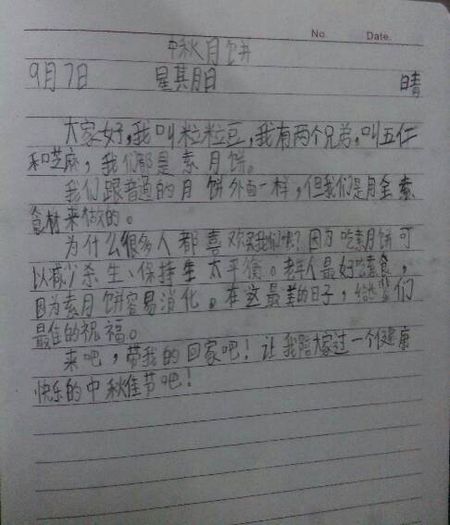 No.
Date.
中秋月饼
9月7日 星其月日 晴
大家好,我叫粒粒豆,我有两个兄弟,叫五仁
和芝麻,我们都是素月饼。
我们跟普通的月饼外面一样,但我们是用全素
食材来做的。
为什么很多人都喜欢买我们呢?因为吃素月饼可
以减少杀生、保持生太平衡。老人最好吃素食,
因为素月饼容易消化。在这最美的日子,给长辈们
最佳的祝福。
来吧,带我的回家吧!让我陪大家过一个健康
快乐的中秋佳节吧!